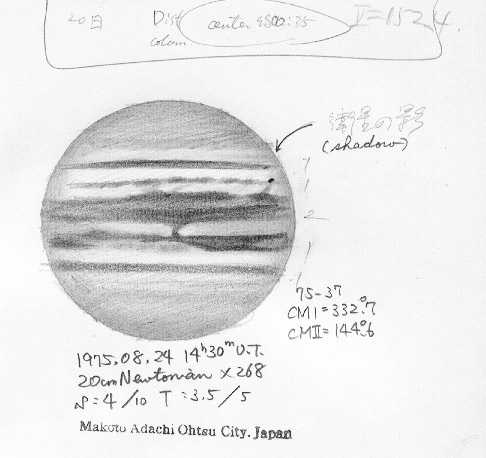 20日 Dist center
colum
衛星の影
(shadow)
75-37
CMI=332°.7
CMII=144°.6
1975.08.24 14h30m U.T.
20cm Newtonian ×268
S=4/10 T=3.5/5
Makoto Adachi Ohtsu City. Japan